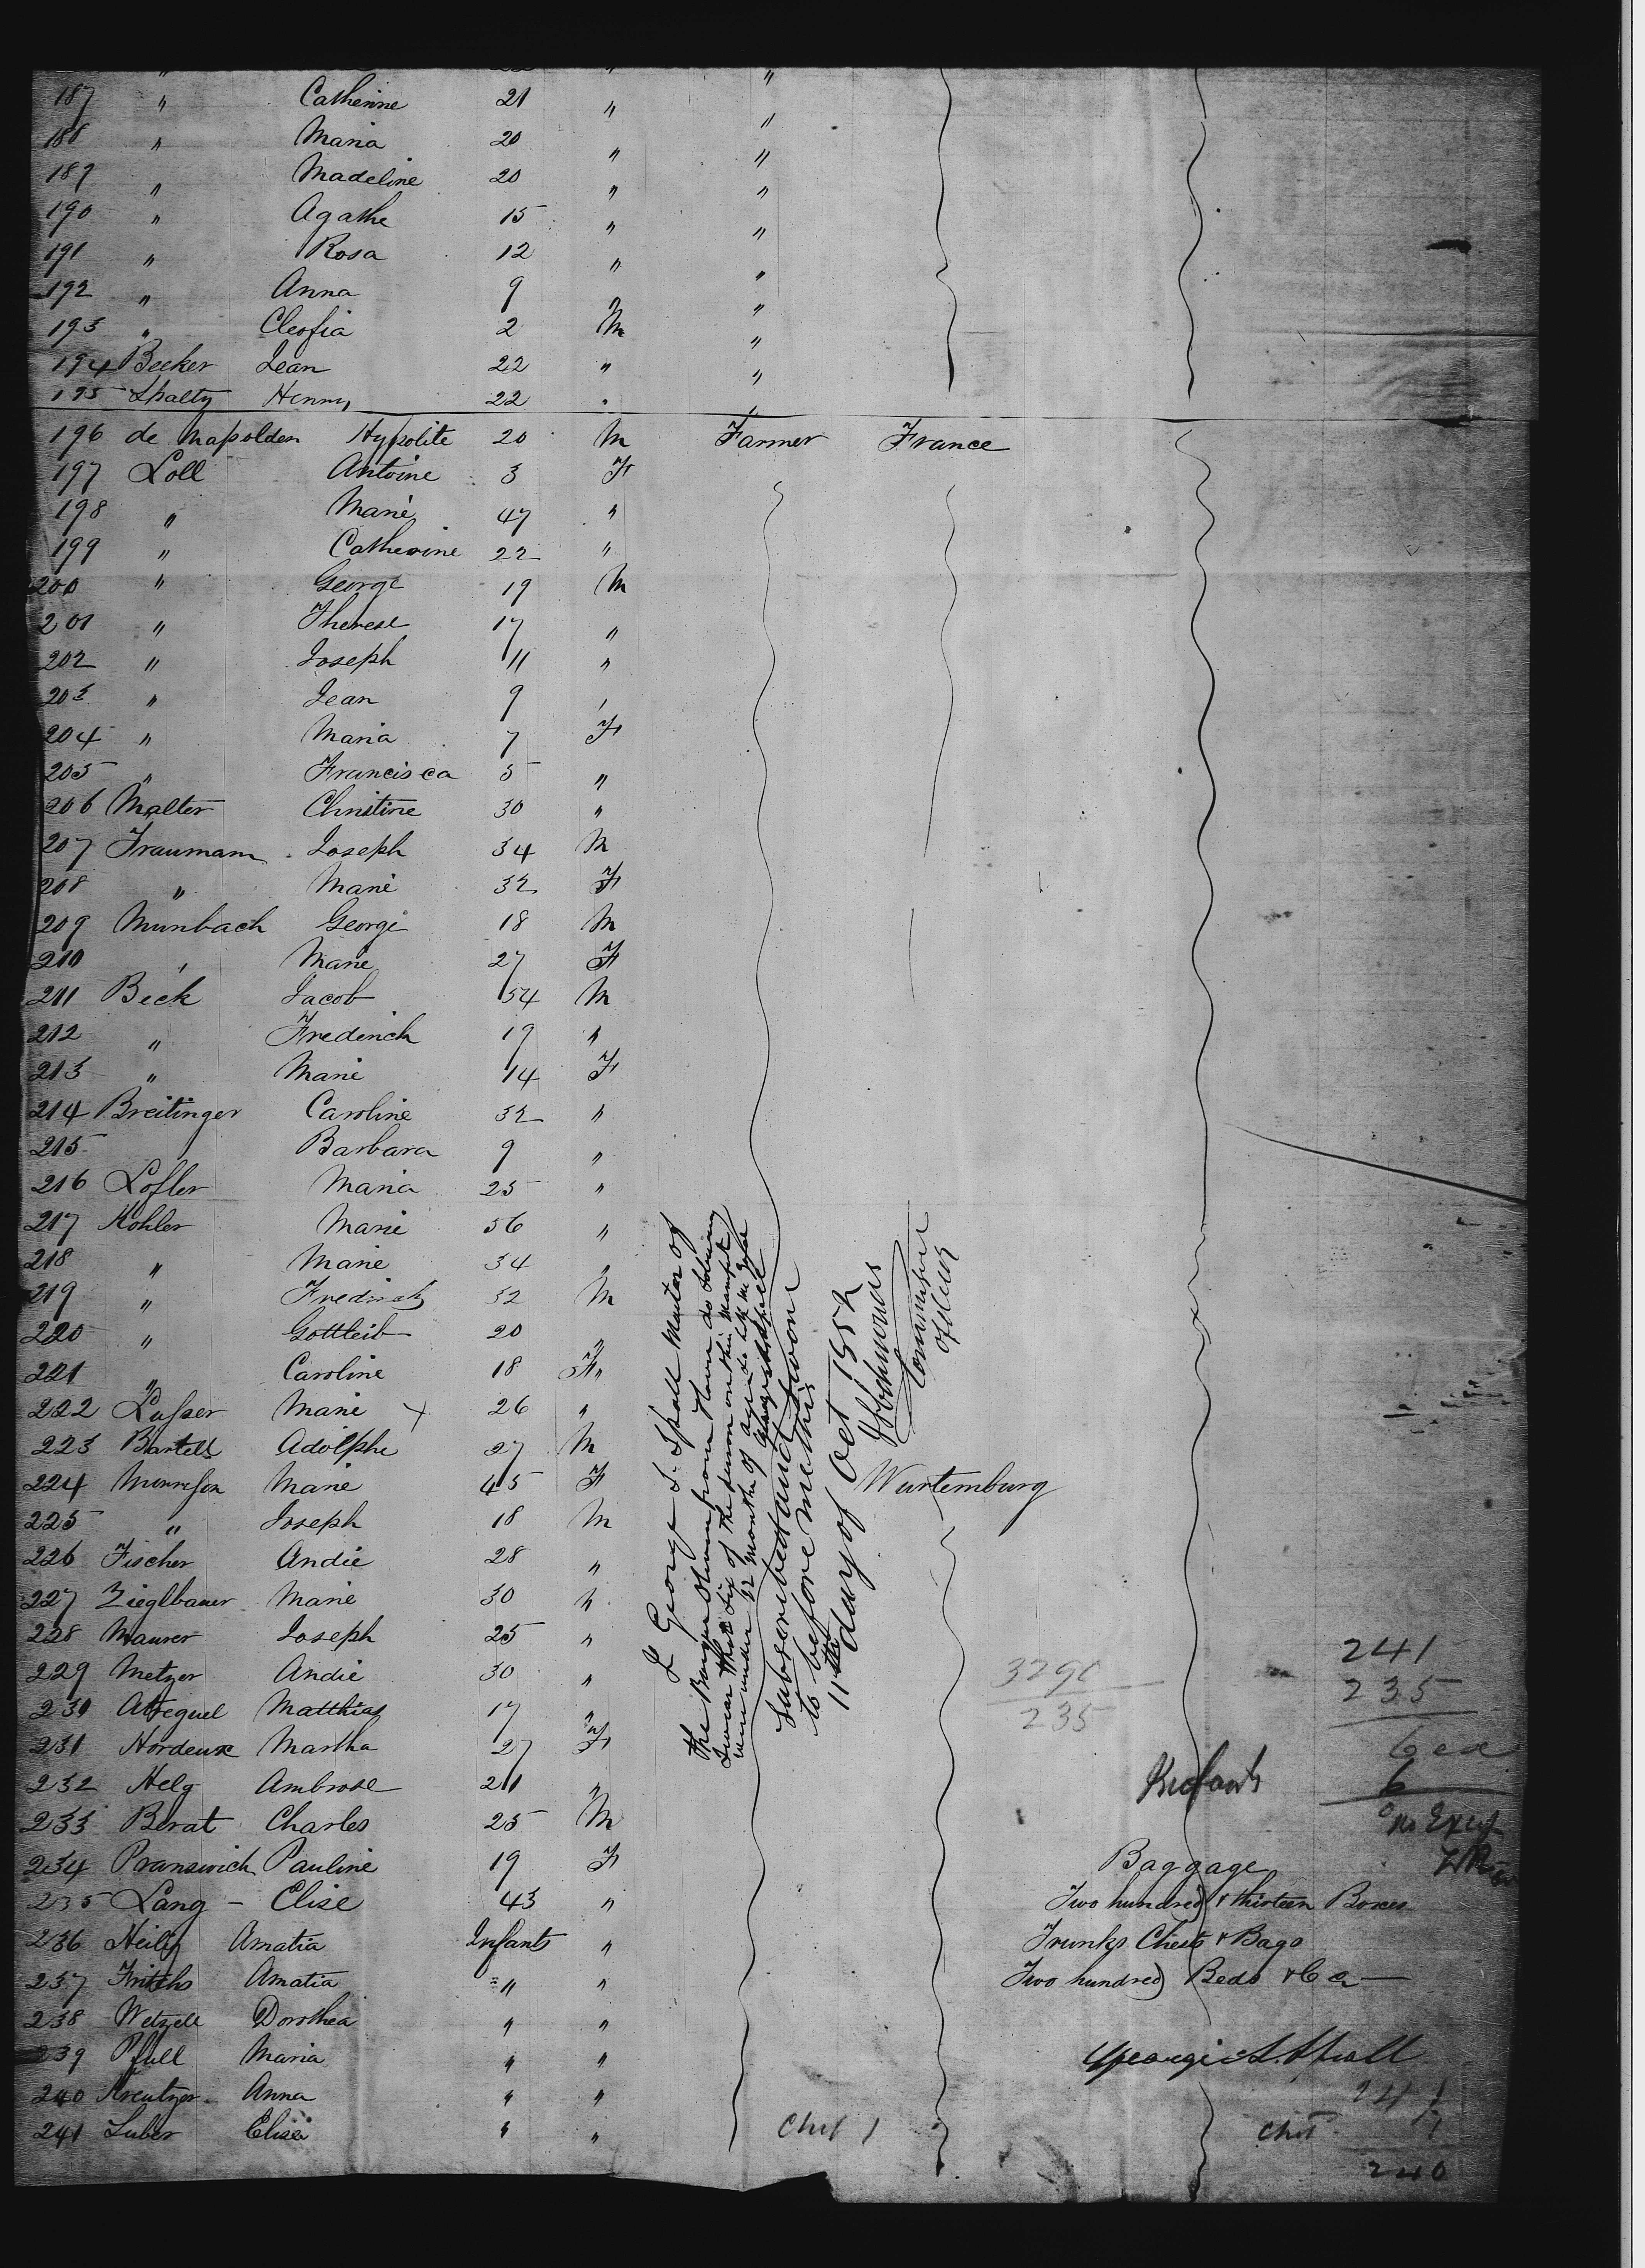 187 " Catherine 21 " "
188 " Maria 20 " "
189 " Madeline 20 " "
190 " Agathe 15 " "
191 " Rosa 12 " "
192 " Anna 9 " "
193 " Cleofia 2 M "
194 Becker Jean 22 " "
195 Henny 22 " "
196 de Hypolite 20 M Farmer France
197 Loll Antoine 3 F
198 " Marie 47 "
199 " Catherine 22 "
200 " George 19 M
201 " Therese 17 "
202 " Joseph 11 "
203 " Jean 9 "
204 " Maria 7 F
205 " Francisca 5 "
206 Malter Christine 30 "
207 Traumann Joseph 34 M
208 " Marie 32 F
209 Munbach George 18 M
210 " Marie 27 F
211 Beck Jacob 54 M
212 " Frederich 19 "
213 " Marie 14 F
214 Breitinger Caroline 32 "
215 Barbara 9 "
216 Lofler Maria 25 "
217 Kohler Marie 56 "
218 " Marie 34 "
219 " Fredrich 32 M
220 " Gottleib 20 "
221 " Caroline 18 F "
222 Marie + 26 "
223 Bartels Adolphe 27 M
224 Marie 45 F Wurtemburg
225 " Joseph 18 M
226 Fischer Andie 28 "
227 Zieglbauer Marie 30 "
228 Maurer Joseph 25 "
229 Metzer Andie 30 "
230 Matthias 17 "
231 Martha 27 F
232 Helg Ambrose 21 "
233 Berat Charles 25 M
234 Pranswich Pauline 19 F
235 Lang - Elise 43 "
236 Heilig Amatia Infants "
237 Amatia " "
238 Wetzell Dorothea " "
239 Pfull Maria " "
240 Kreutzer Anna " "
241 Luber Elise " "
I George S. Spall Master of
the Barque from Havre do solemnly
swear that six of the persons on this manifest
were under 12 months of age
Subscribed and sworn
to before me this
11th day of Oct 1852
3290
235
241
235
6 ex
6
Baggage
Two hundred & thirteen Boxes
Trunks Chests & Bags
Two hundred Beds &ca
George S. Spall
241
1
240